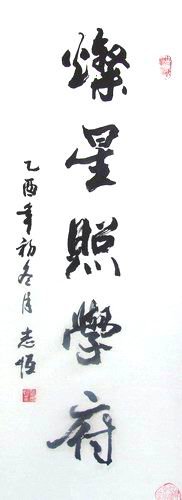 燦星照學府
乙酉年初冬月志恒